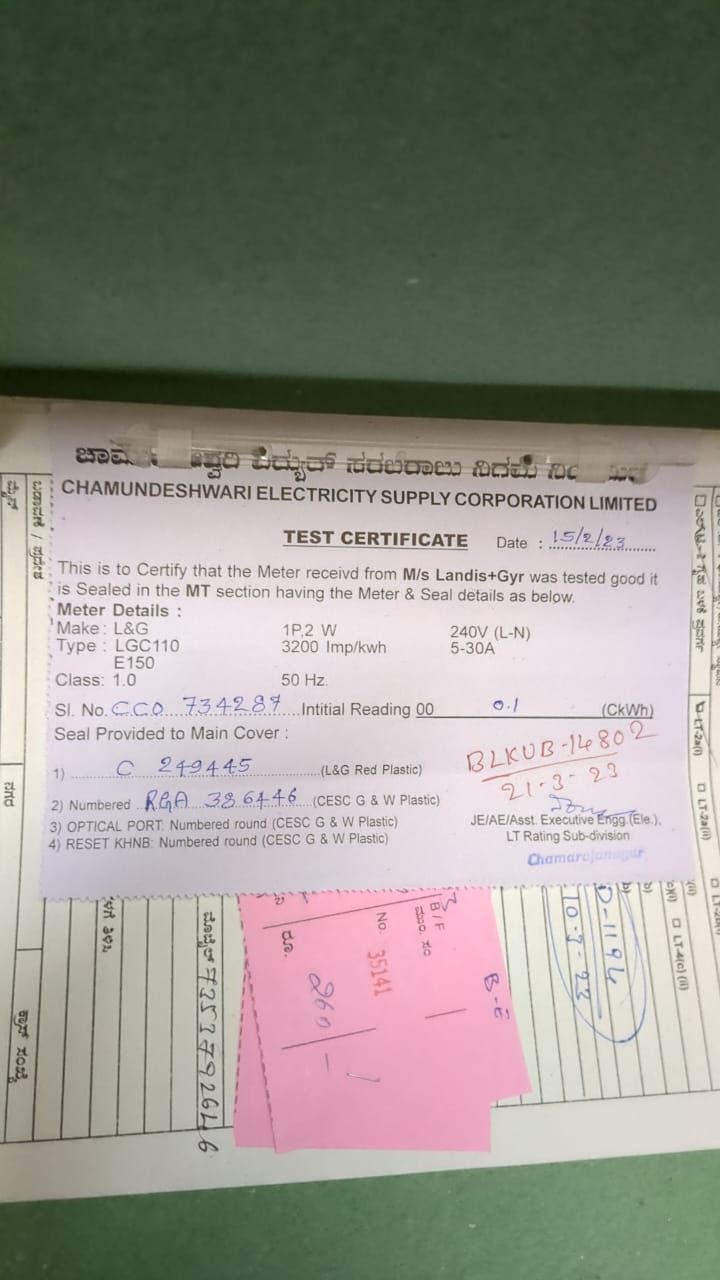 ವಿದ್ಯುತ್ ಸರಬರಾಜು ನಿಗಮ
CHAMUNDESHWARI ELECTRICITY SUPPLY CORPORATION LIMITED
TEST CERTIFICATE Date : 15/2/23
This is to Certify that the Meter receivd from M/s Landis+Gyr was tested good it
is Sealed in the MT section having the Meter & Seal details as below.
Meter Details :
Make : L&G 1P,2 W 240V (L-N)
Type : LGC110 3200 Imp/kwh 5-30A
E150
Class: 1.0 50 Hz.
Sl. No. CCO 734287 Intitial Reading 00 0.1 (CkWh)
Seal Provided to Main Cover :
1) C 249445 (L&G Red Plastic)
BLKUB-14802
21-3-23
2) Numbered RGA 386446 (CESC G & W Plastic)
3) OPTICAL PORT: Numbered round (CESC G & W Plastic)
4) RESET KHNB: Numbered round (CESC G & W Plastic)
JE/AE/Asst. Executive Engg.(Ele.),
LT Rating Sub-division
Chamarajanagar
ಬಡಾವಣೆ / ಪ್ರದೇಶ
ನಗರ
LT-2a(i)
LT-2a(ii)
LT-4(c) (ii)
B/F
No. 35141
ರೂ. 260/-
B-E